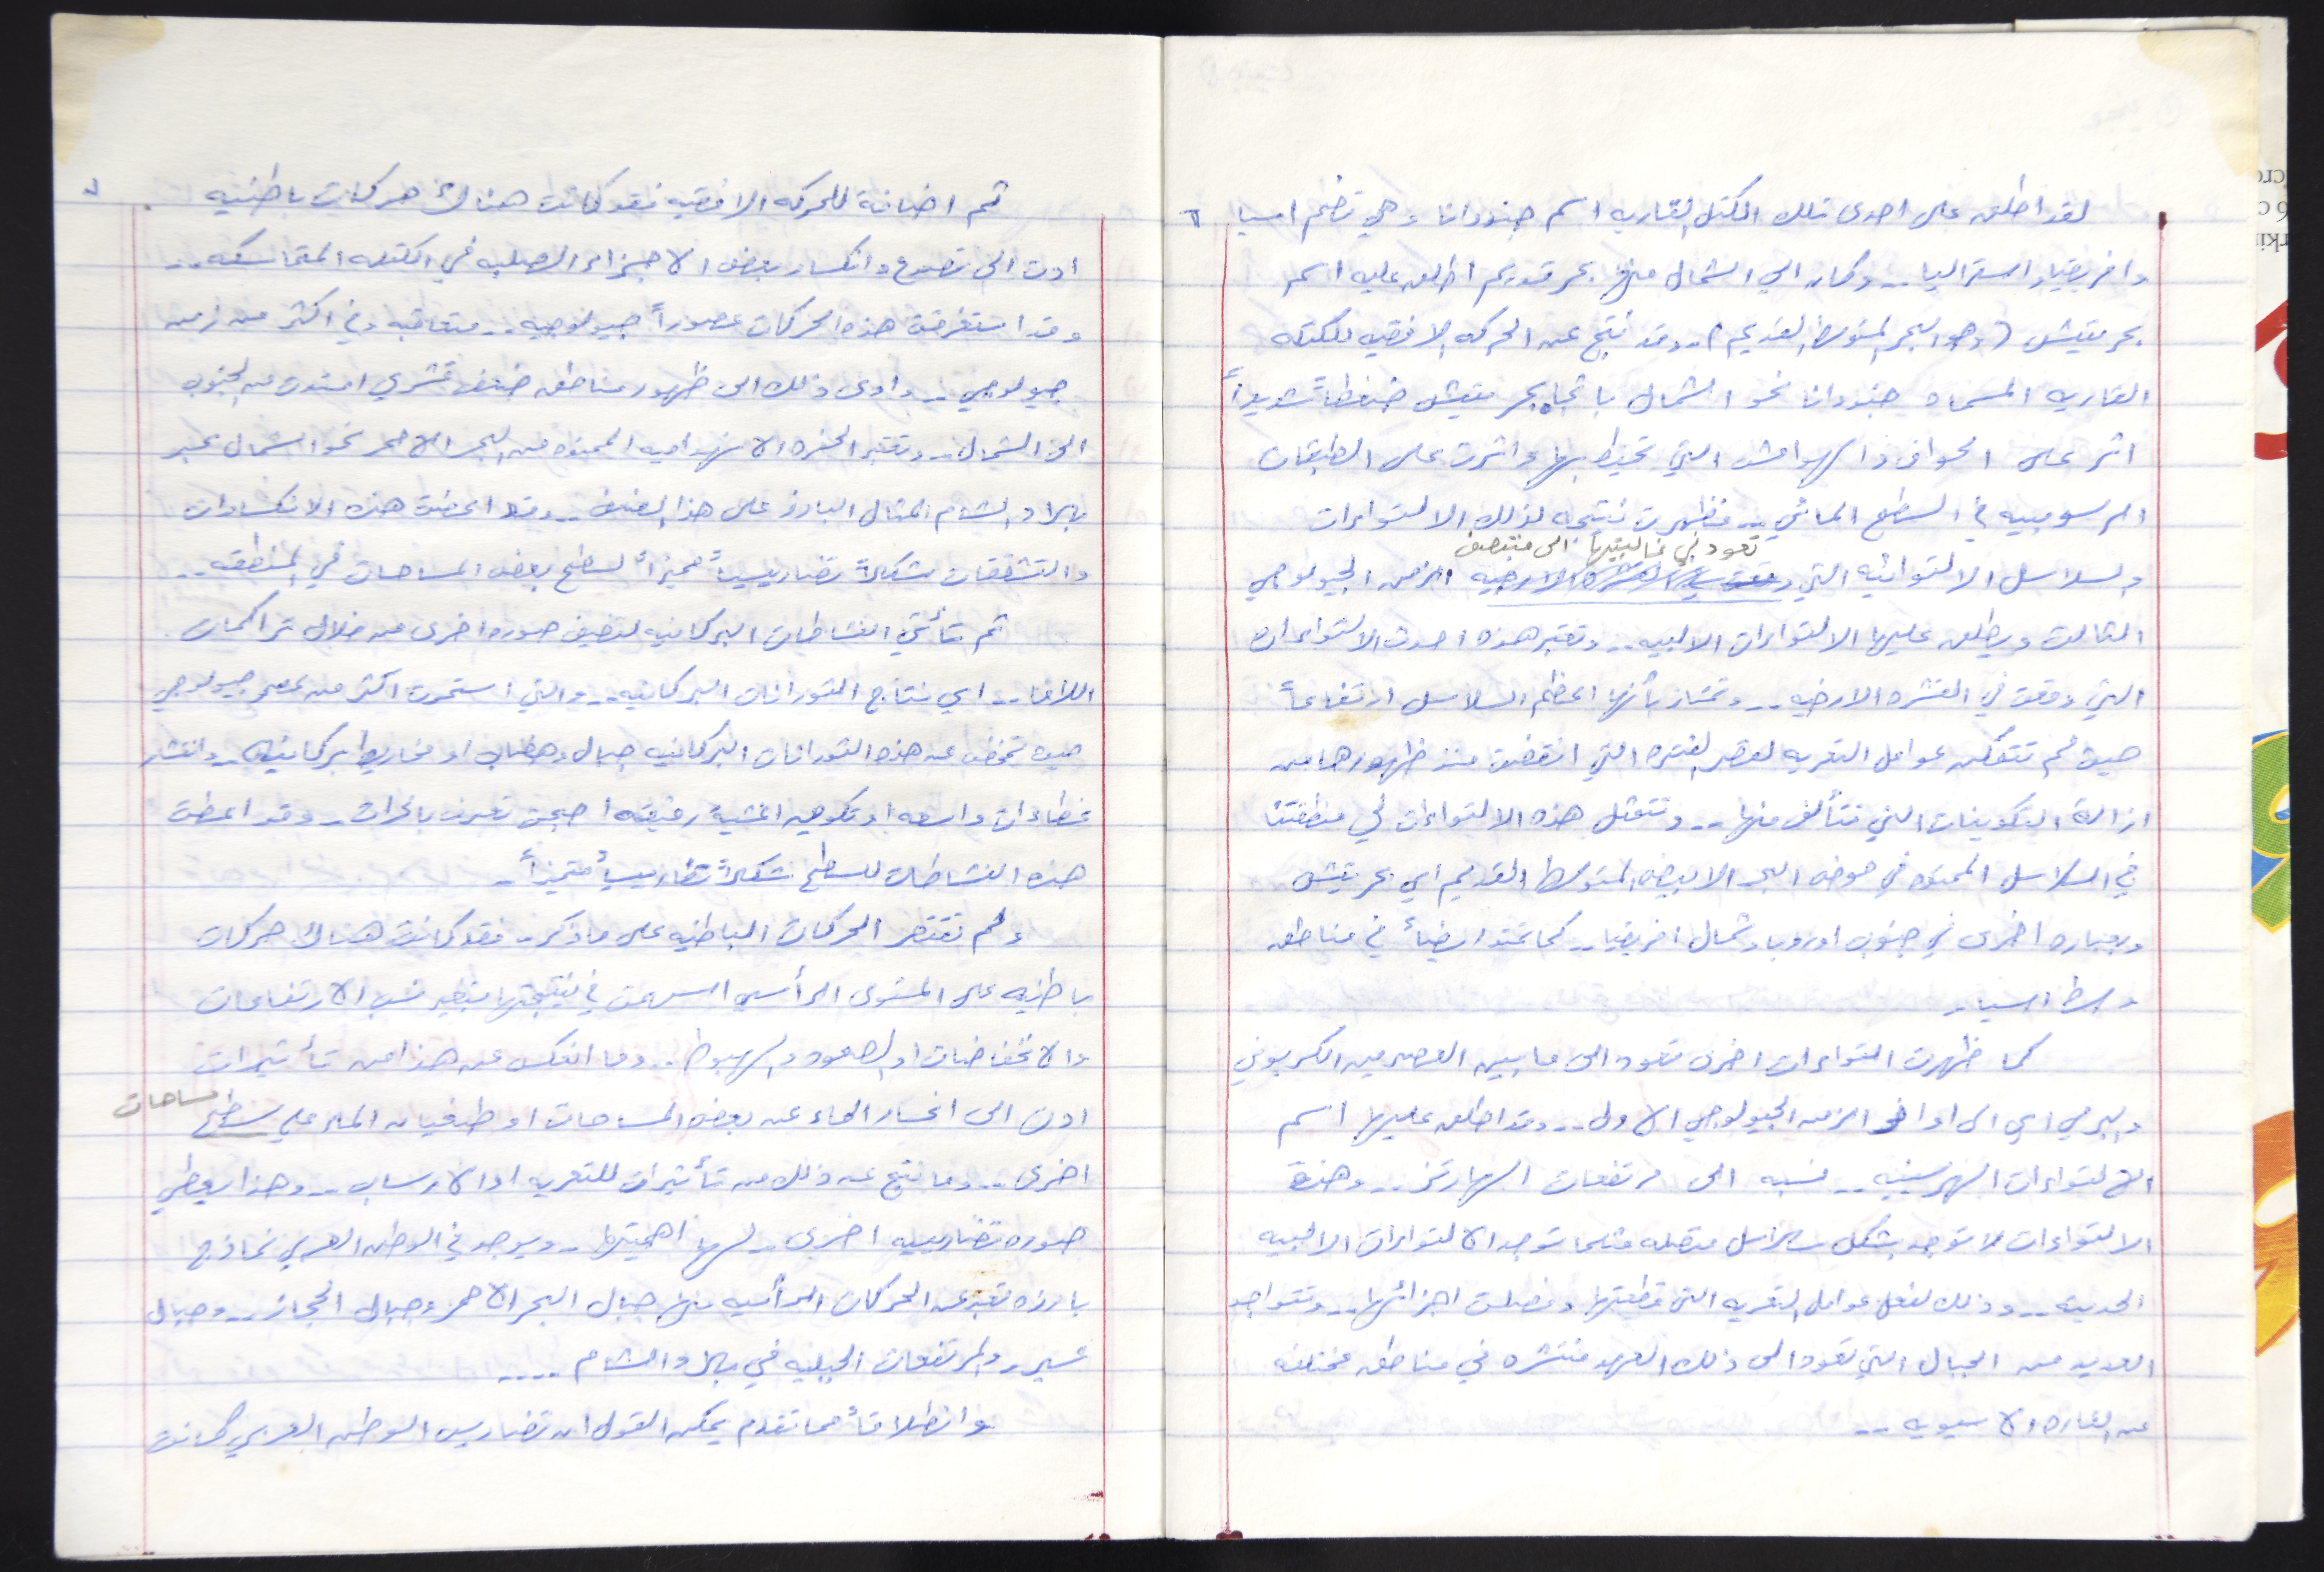 ٦
لقد اطلق على احدى تلك الكتل القاريه اسم جندوانا وهي تضم اسيا
وافريقيا واستراليا .. وكان الى الشمال منها بحر قديم اطلق عليه اسم
بحر تيتش (وهو البحر المتوسط القديم) .. وقد نتج عن الحركه الافقيه للكتله
القاريه المسماه جندوانا نحو الشمال باتجاه بحر تيتش ضغطاً شديداً
اثر على الحواف والهوامش التي تحيط بها واثرت على الطبقات
الرسوبيه في السطح المائي .. فظهرت نتيجه لذلك الالتواءات
تعود في غالبيتها الى منتصف
والسلاسل الالتوائيه التي القشره الارضيه الزمن الجيولوجي
الثالث ويطلق عليها الالتواءات الالبيه .. وتعتبر هذه احدث الالتواءات
التي وقعت في القشره الارضيه .. وتمتاز بأنها اعظم السلاسل ارتفاعاً
حيث لم تتمكن عوامل التعريه لقصر الفتره التي انقضت منذ ظهورها من
ازالة التكوينات التي تتألف منها .. وتتمثل هذه الالتواءات في منطقتنا
في السلاسل الممتده في حوض البحر الابيض المتوسط القديم اي بحر تيتش
وبعباره اخرى في جنوب اوروبا وشمال افريقيا .. كما تمتد ايضاً في مناطق
وسط اسيا ..
كما ظهرت التواءات اخرى تعود الى ما بين العصرين الكربوني
والبرمي اي الى اواخر الزمن الجيولوجي الاول .. وقد اطلق عليها اسم
الالتواءات الهرسينيه .. نسبه الى مرتفعات الهارتز .. وهذه
الالتواءات لا توجد بشكل سلاسل متصله مثلما توجد الالتواءات الالبيه
الحديثه .. وذلك لفعل عوامل التعريه التي قطعتها وفصلت اجزائها .. وتتواجد
العديد من الجبال التي تعود الى ذلك العهد منتشره في مناطق مختلفه
من القاره الاسيويه ..
٧
ثم اضافة للحركه الافقيه فقد كانت هناك حركات باطنيه
ادت الى تصدع وانكسار بعض الاجزاء الصلبه في الكتله المتماسكه ..
وقد استغرقت هذه الحركات عصوراً جيولوجيه .. متعاقبه وفي اكثر من زمن
جيولوجي .. وادى ذلك الى ظهور مناطق ضعف قشري امتدت من الجنوب
الى الشمال .. وتعتبر الحفره الانهداميه الممتده من البحر الاحمر نحو الشمال عبر
بلاد الشام المثال البارز على هذا الضعف .. وقد اعطت هذه الانكسارات
والتشققات شكلاً تضاريسياً مميزاً لسطح بعض المساحات في المنطقه ..
ثم تأتي النشاطات البركانيه لتضيف صوره اخرى من خلال تراكمات
اللافا .. اي نتاج الثورانات البركانيه .. والتي استمرت اكثر من عصر جيولوجي
حيث تمخض عن هذه الثورانات البركانيه جبال وهضاب او مخاريط بركانيه .. وانتشار
غطاءات واسعه او تكوين اغشية رقيقه اصبحت تعرف بالحرات .. وقد اعطت
هذه النشاطات للسطح شكلاً تضاريسياً متميزاً ..
ولم تقتصر الحركات الباطنيه على ما ذكر .. فقد كانت هناك حركات
باطنيه على المستوى الرأسي اسهمت في نتيجتها بتغيير نسب الارتفاعات
والانخفاضات او الصعود والهبوط .. وما انعكس عن هذا من تأثيرات
ادت الى انحسار الماء عن بعض المساحات او طغيان الماء على سطح مساحات
اخرى .. وما نتج عن ذلك من تأثيرات للتعريه او الارساب .. وهذا يعطي
صوره تضاريسيه اخرى .. لها اهميتها .. ويوجد في الوطن العربي نماذج
بارزه تعبر عن الحركات الرأسيه منها جبال البحر الاحمر وجبال الحجاز .. وجبال
عسير والمرتفعات الجبليه في بلاد الشام ....
وانطلاقاً مما تقدم يمكن القول ان تضاريس الوطن العربي كانت